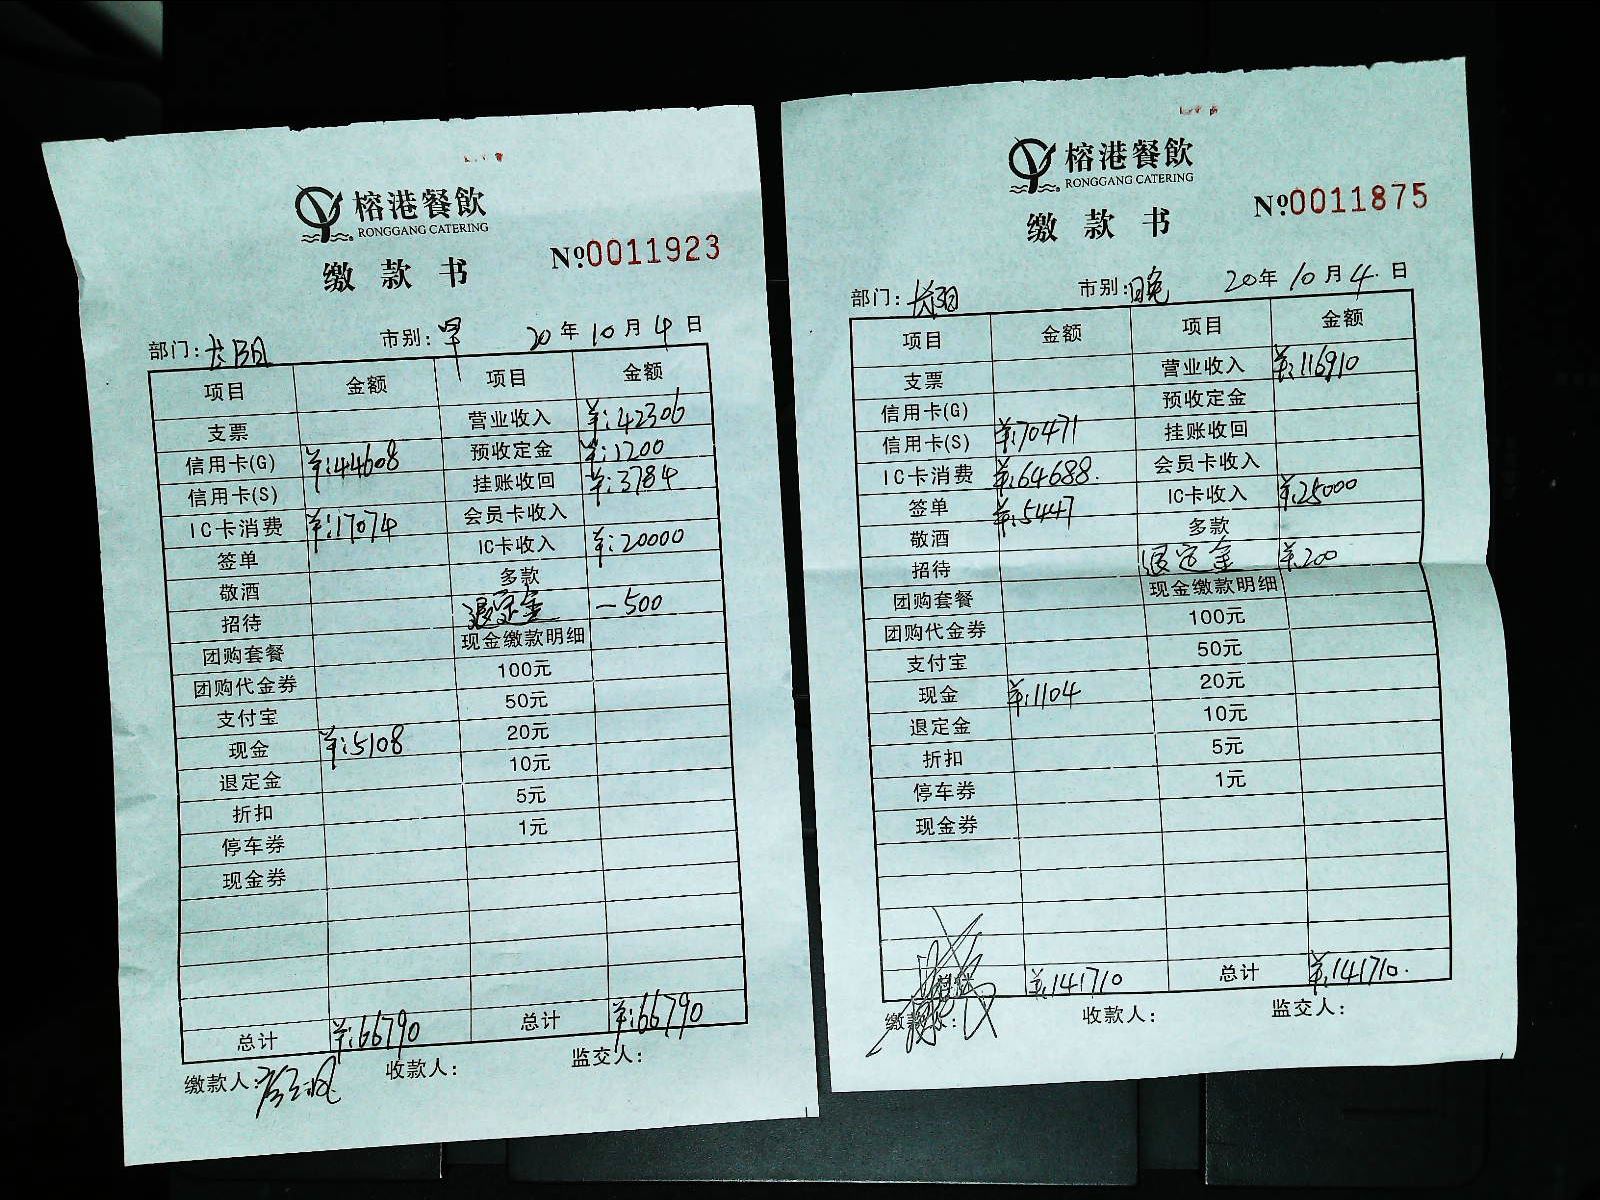 榕港餐飲
RONGGANG CATERING
缴款书
№0011923
部门：长阳 市别：早 20年10月4日
项目 金额 项目 金额
支票 营业收入 ¥：42306
信用卡(G) ¥：44608 预收定金 ¥：1200
信用卡(S) 挂账收回 ¥：3784
IC卡消费 ¥：17074 会员卡收入
签单 IC卡收入 ¥：20000
敬酒 多款
招待 退定金 —500
团购套餐 现金缴款明细
团购代金券 100元
支付宝 50元
现金 ¥：5108 20元
退定金 10元
折扣 5元
停车券 1元
现金券
总计 ¥：66790 总计 ¥：66790
缴款人： 收款人： 监交人：
榕港餐飲
RONGGANG CATERING
缴款书
№0011875
部门：长阳 市别：晚 20年10月4日
项目 金额 项目 金额
支票 营业收入 ¥：116910
信用卡(G) 预收定金
信用卡(S) ¥：70471 挂账收回
IC卡消费 ¥：64688. 会员卡收入
签单 ¥：5447 IC卡收入 ¥：25000
敬酒 多款
招待 退定金 ¥：200
团购套餐 现金缴款明细
团购代金券 100元
支付宝 50元
现金 ¥：1104 20元
退定金 10元
折扣 5元
停车券 1元
现金券
¥：141710 总计 ¥：141710.
缴款人： 收款人： 监交人：